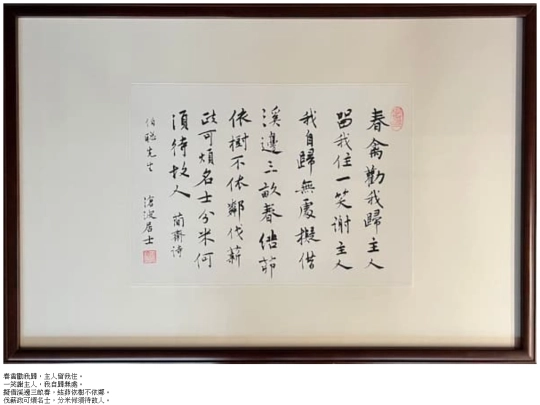 春禽勸我歸主人
留我住一笑謝主人
我自歸無處擬借
溪邊三畝春結茆
依樹不依鄰伐薪
政可煩名士分米何
須待故人 簡齋詩
伯聰先生 滄波居士
春禽勸我歸，主人留我住。
一笑謝主人，我自歸無處。
擬借溪邊三畝春，結茆依樹不依鄰。
伐薪政可煩名士，分米何須待故人。